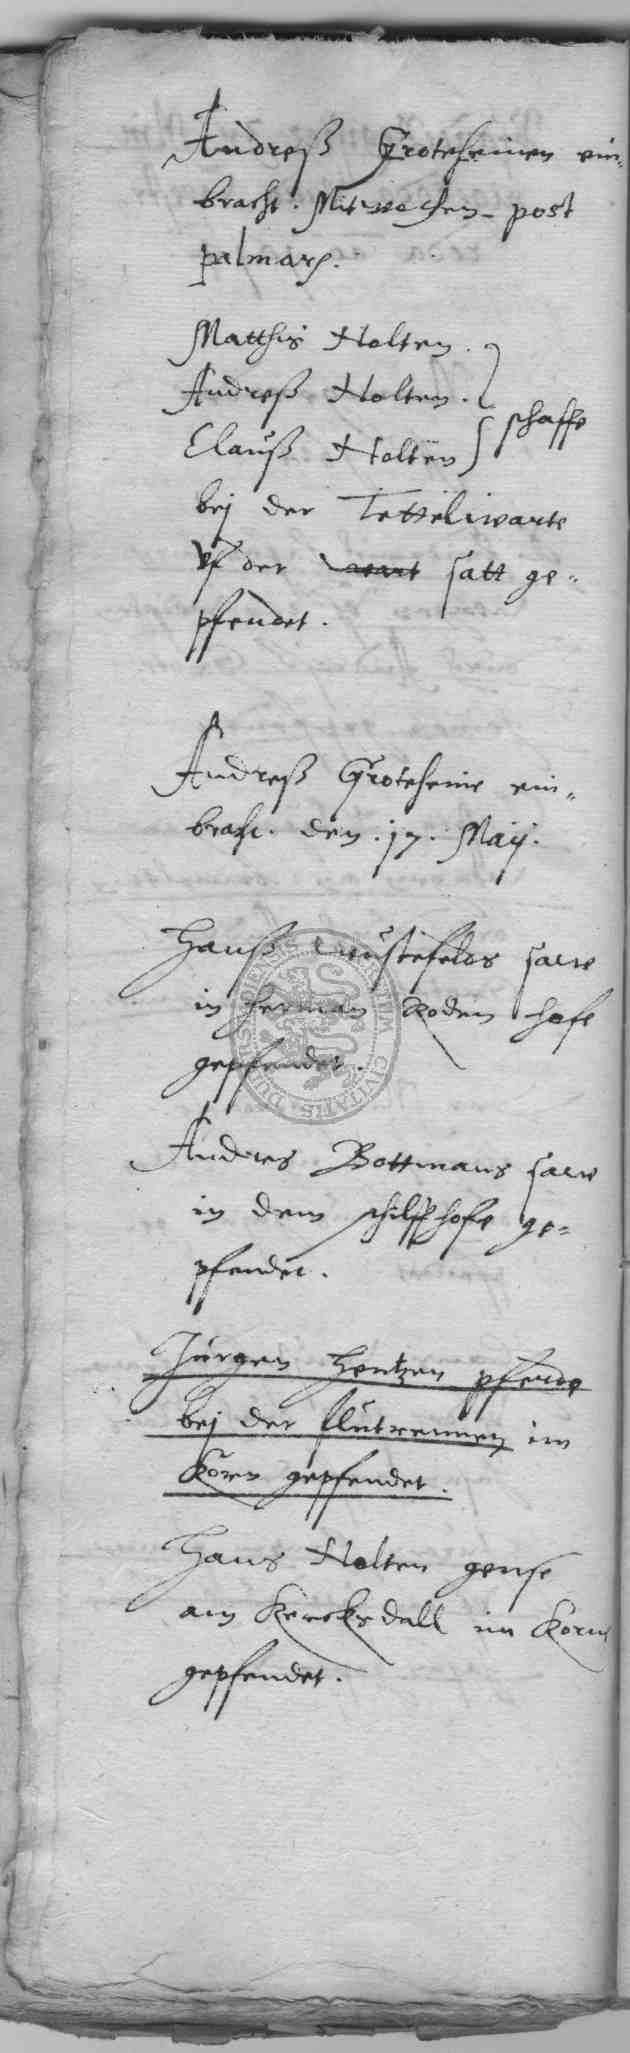 Andreß Groteheinen ein-
bracht. Mitwochen post
palmarum.
Matthis Nolten.
Andreß Nolten.
Clauß Nolten schaffe
bej der Tetteliwarte
vf der wart satt ge-
pfendet.
Andreß Groteheine ein-
bracht. den .17. Maij.
Hanß Wüstefelds sawe
in Herman Roden hofe
gepfendet.
Andres Bottmans sawe
in dem schilffhofe ge-
pfendet.
Jürgen Hentzen pferde
bej der flutrennen im
Korn gepfendet.
Hans Nolten gense
am Kercksdall im Korn
gepfendet.